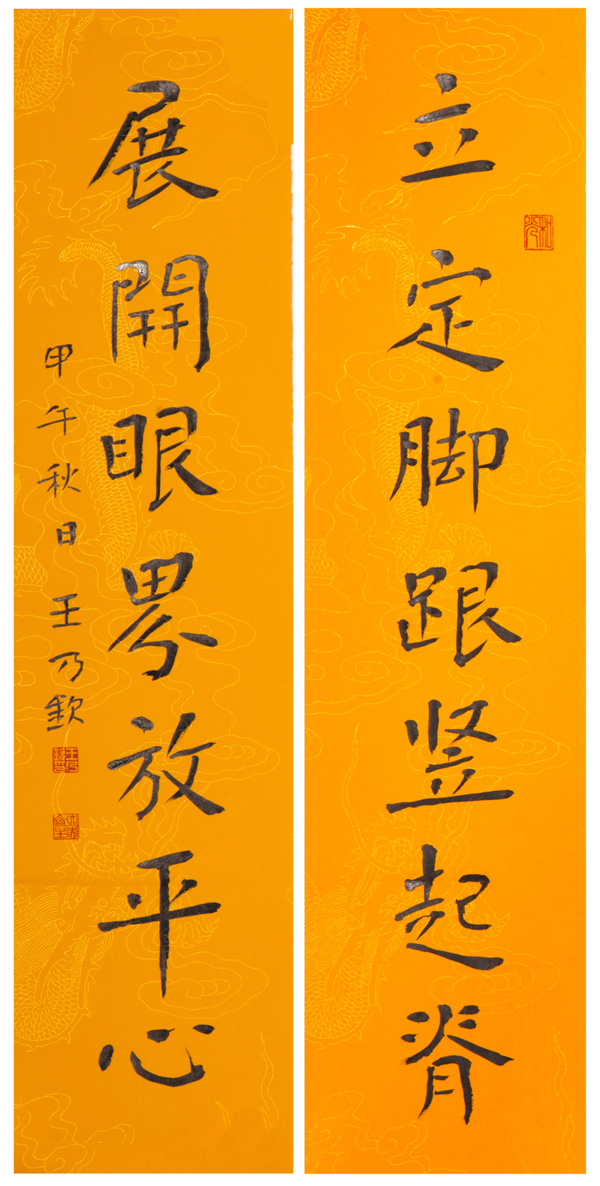 立定脚跟竖起脊
展開眼界放平心
甲午秋日王乃欽